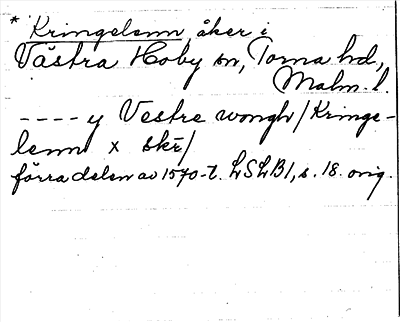 * Kringelenn, åker i
Västra Hoby sn, Torna hd,
Malm. l.
---- y Vestre wongh / Kringe-
lenn x skr/
förra delen av 1570-t. LSLB1, s. 18. orig.